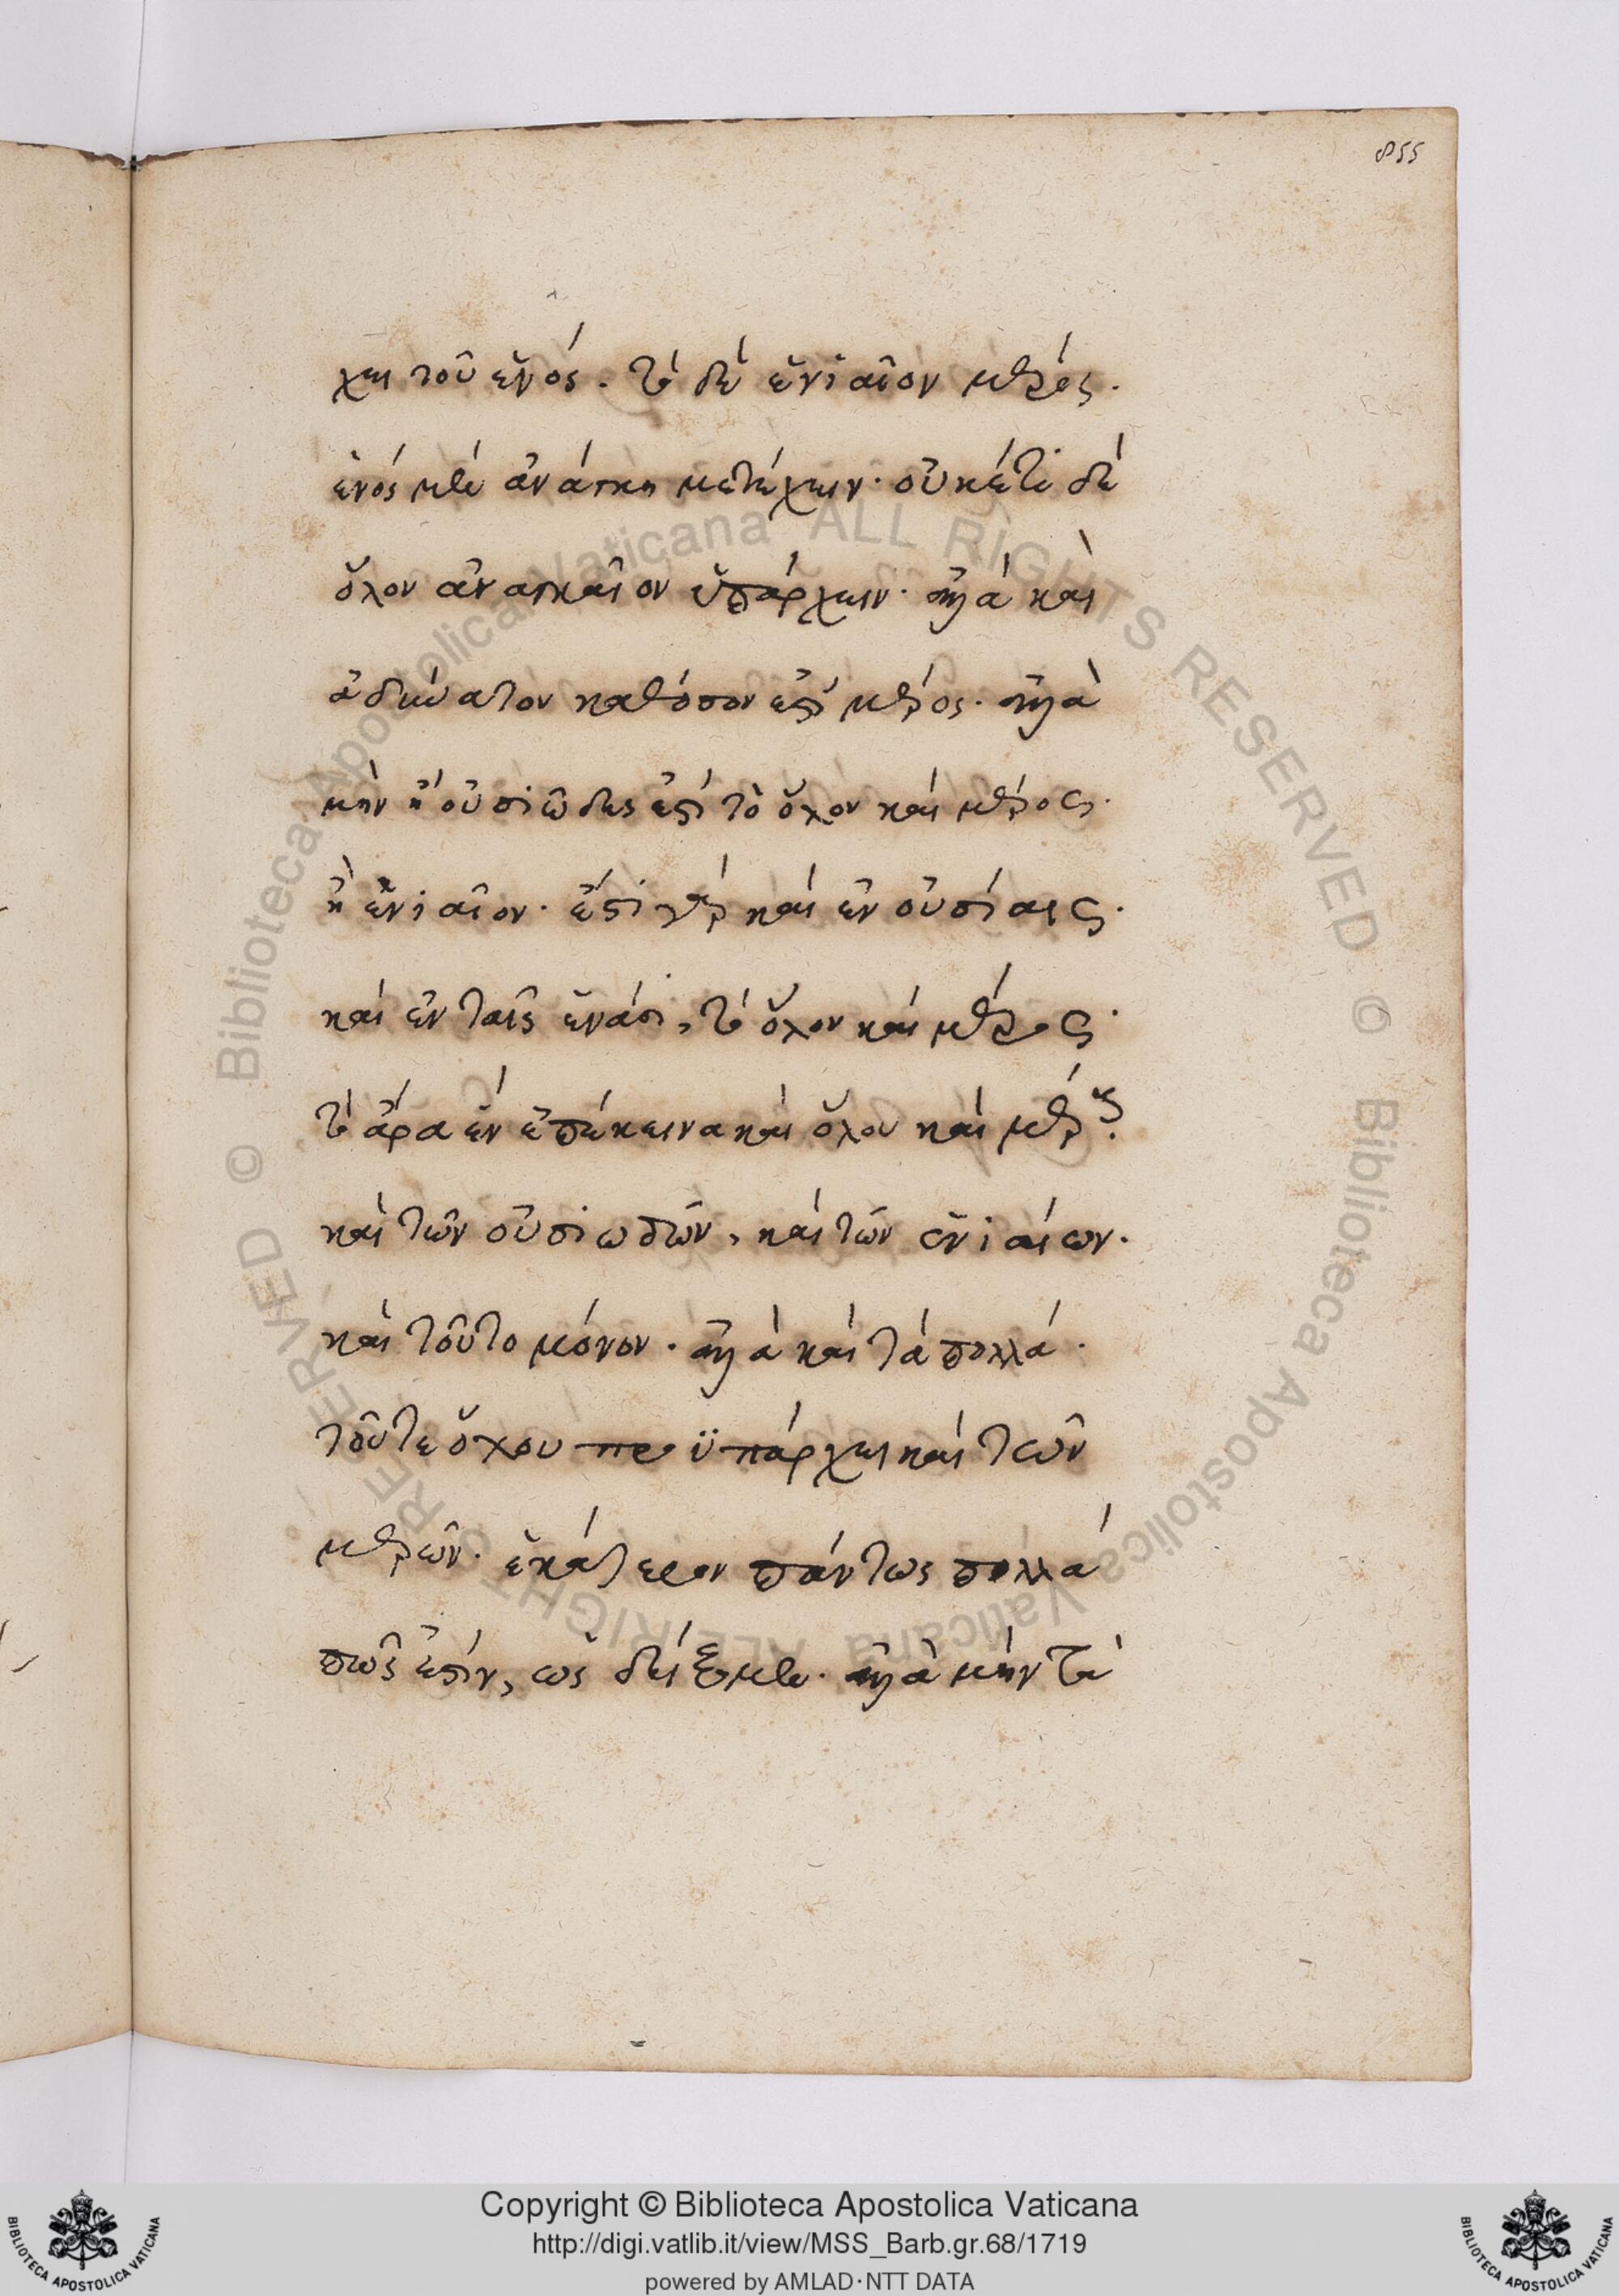 855
χει τοῦ ἑνός. τὸ δὲ ἑνιαῖον μέρος.
ἑνὸς μὲν ἀνάγκη μετέχειν· οὐκέτι δὲ
ὅλον ἀναγκαῖον ὑπάρχειν· ἀλλὰ καὶ
ἀδύνατον καθόσον ἐστὶ μέρος· ἀλλὰ
μὴν ἢ οὐσιῶδες ἐστὶ τὸ ὅλον καὶ μέρος.
ἢ ἑνιαῖον· ἔστι γὰρ καὶ ἐν οὐσίαις.
καὶ ἐν ταῖς ἑνάσι, τὸ ὅλον καὶ μέρος·
τὸ ἄρα ἓν ἐπέκεινα καὶ ὅλου καὶ μέρους.
καὶ τῶν οὐσιωδῶν, καὶ τῶν ἑνιαίων.
καὶ τοῦτο μόνον· ἀλλὰ καὶ τὰ πολλά.
τοῦτε ὅλου προϋπάρχει καὶ τῶν
μερῶν· ἑκάτερον πάντως πολλά
πως ἐστίν, ὡς δείξομεν· ἀλλὰ μὴν τὸ
Copyright © Biblioteca Apostolica Vaticana
http://digi.vatlib.it/view/MSS_Barb.gr.68/1719
powered by AMLAD·NTT DATA
BIBLIOTECA APOSTOLICA VATICANA
BIBLIOTECA APOSTOLICA VATICANA
© Biblioteca Apostolica Vaticana ALL RIGHTS RESERVED
© Biblioteca Apostolica Vaticana ALL RIGHTS RESERVED